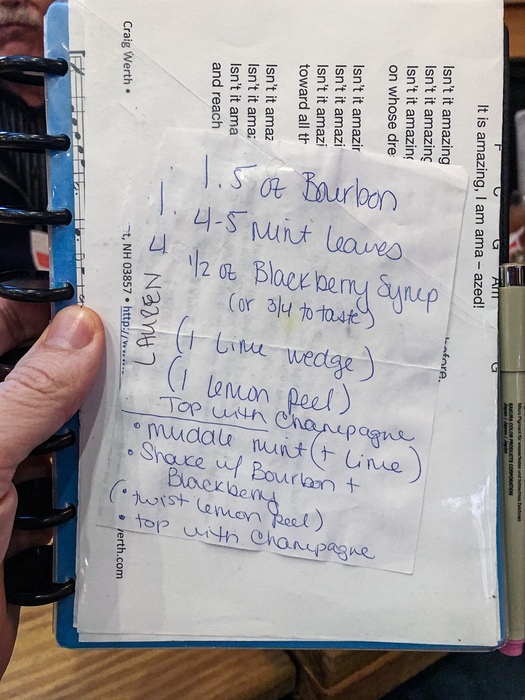 1.5 oz Bourbon
4-5 Mint Leaves
1/2 oz Blackberry Syrup
(or 3/4 to taste)
(1 Lime wedge)
(1 Lemon Peel)
Top with Champagne
• muddle mint (+ Lime)
• Shake w/ Bourbon +
Blackberry
(• twist Lemon peel)
• top with Champagne
LAUREN
It is amazing, I am ama – azed!
F C G Am G
Isn't it amazing
Isn't it amazing
Isn't it amazing
on whose
before,
Isn't it
Isn't it
Isn't it
toward all
Isn't it
Isn't it
Isn't it
and reach
Craig Werth •
t, NH 03857 • http://www.
erth.com
SAKURA COLOR PRODUCTS CORPORATION